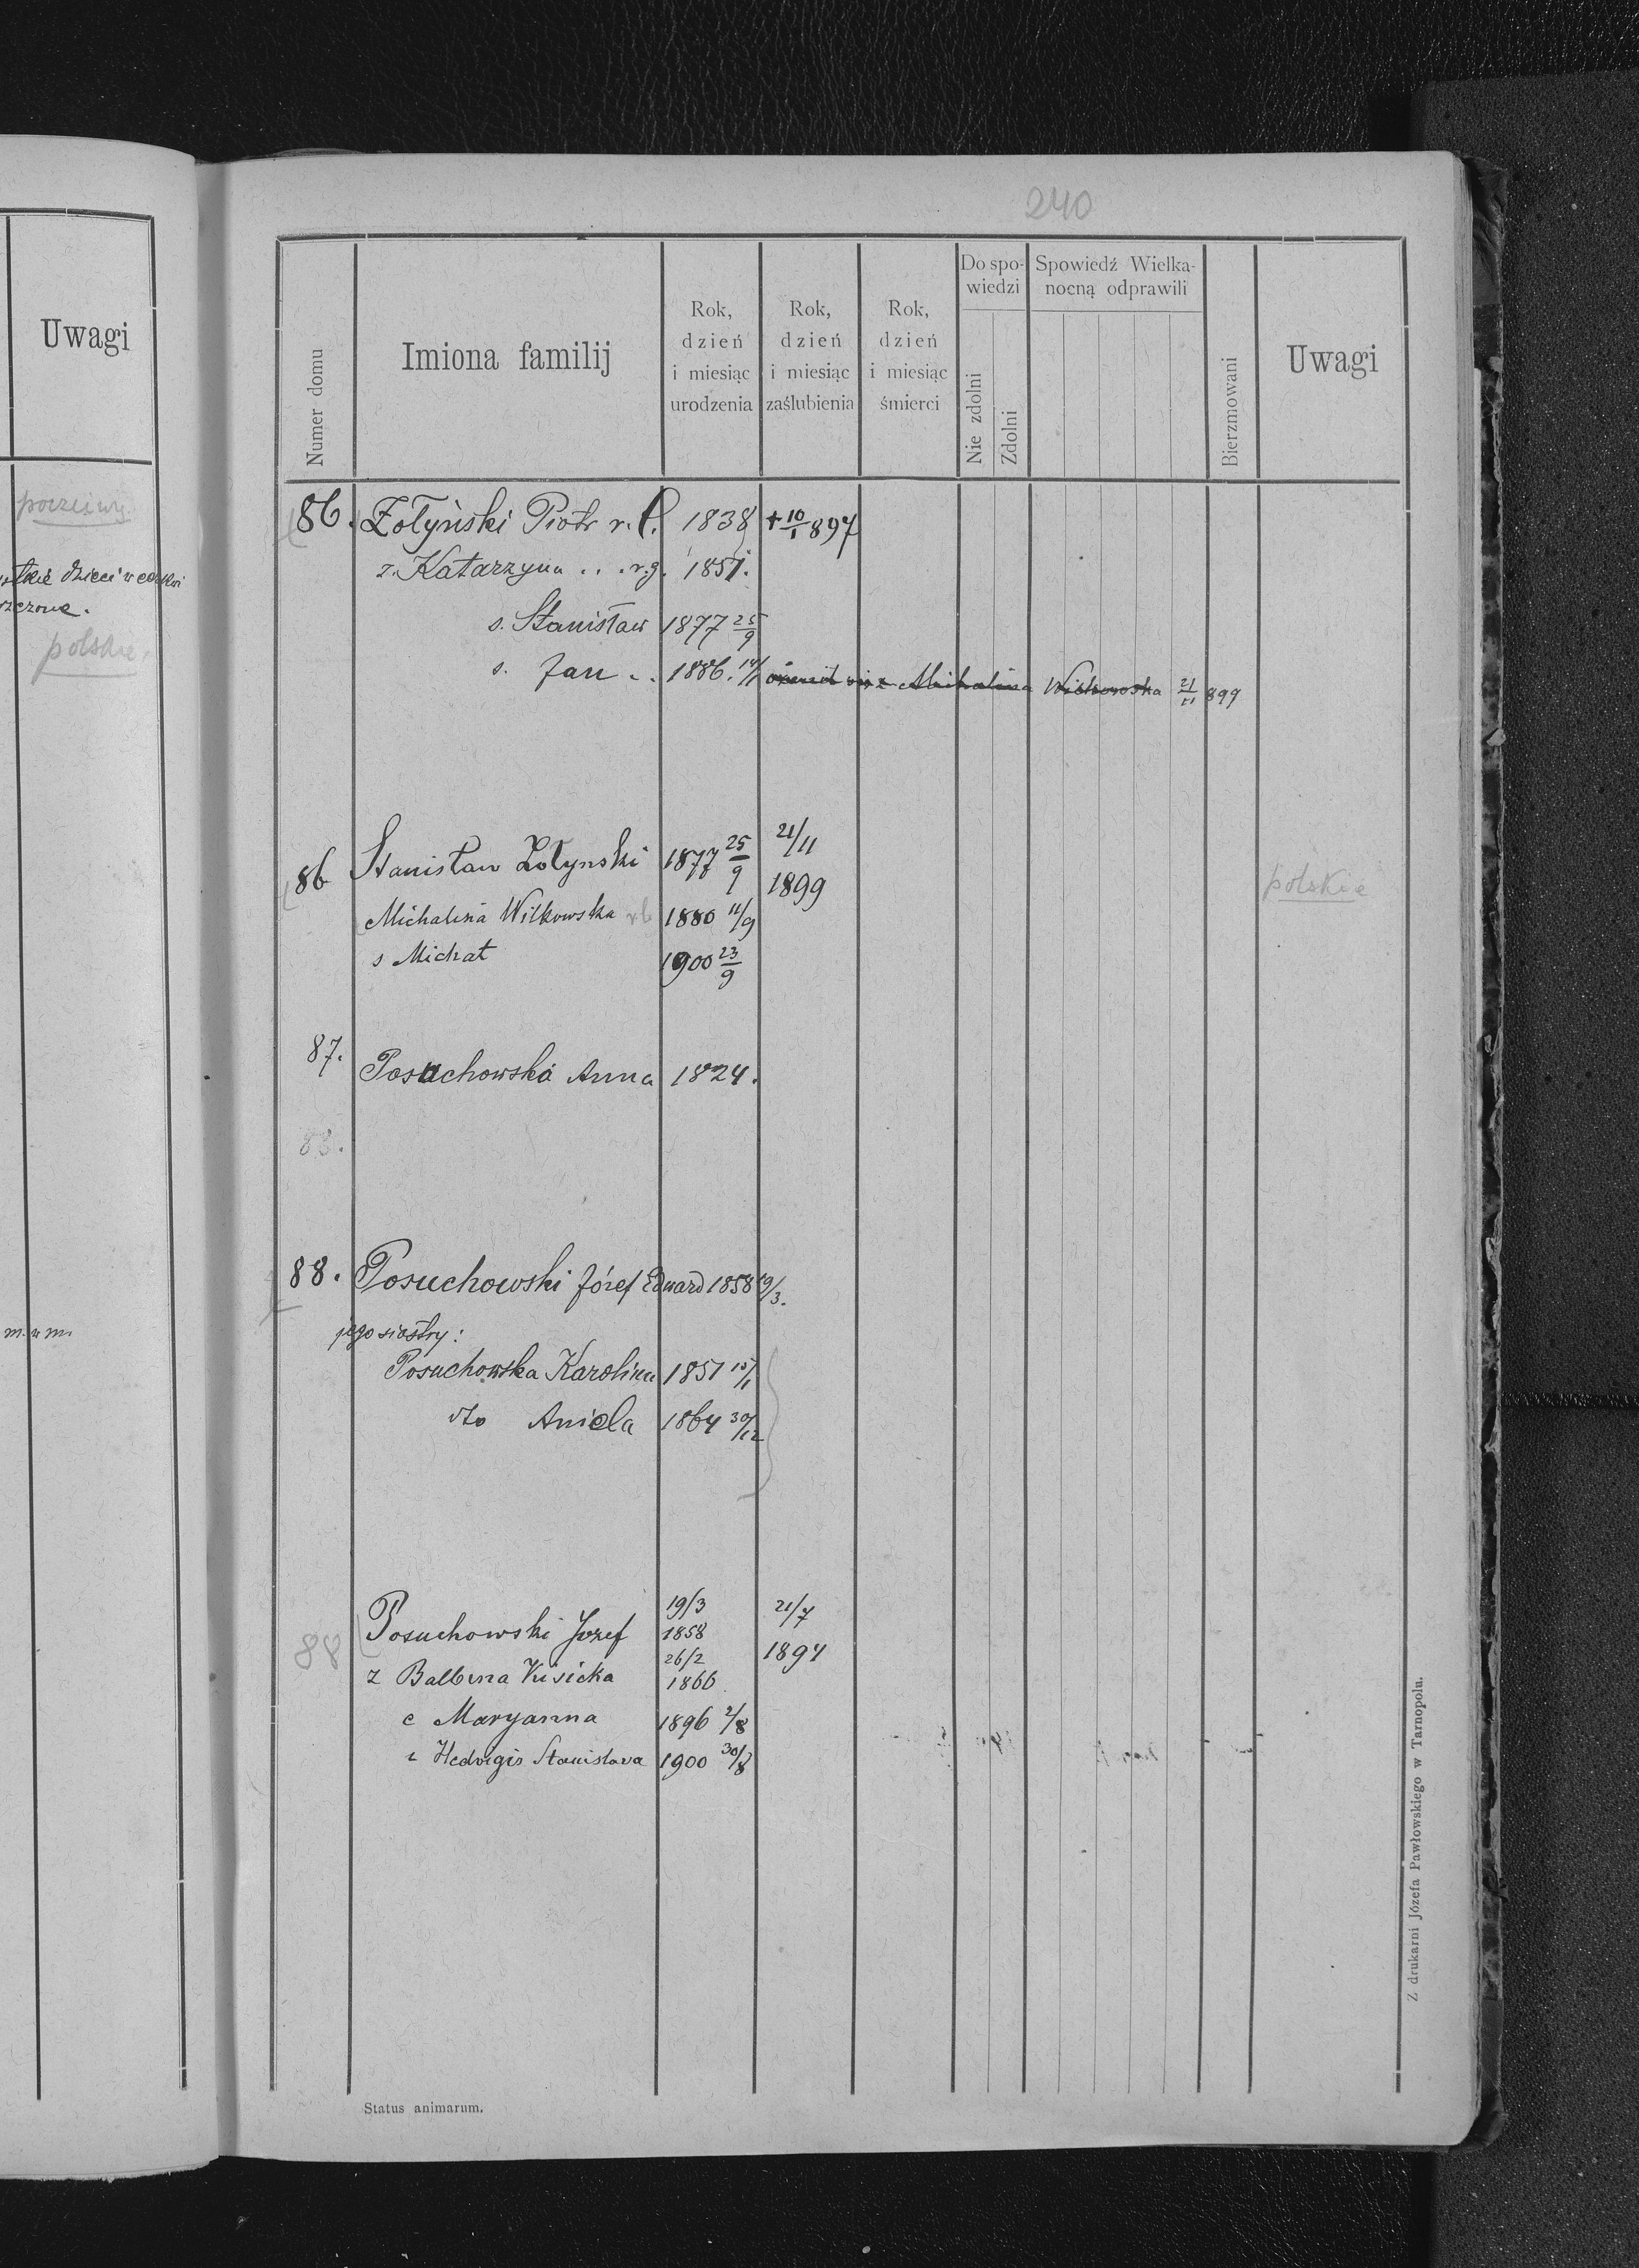 Uwagi
polskie
240
Numer domu
Imiona familij
Rok, dzień i miesiąc urodzenia
Rok, dzień i miesiąc zaślubienia
Rok, dzień i miesiąc śmierci
Do spowiedzi
Nie zdolni
Zdolni
Spowiedź Wielkanocną odprawili
Bierzmowani
Uwagi
86. Żołyński Piotr r. ł. 1838 + 10/1 897
ż. Katarzyna . . . r.g. 1851.
s. Stanisław 1877 25/9
s. Jan . . 1886. 14/1 ożenił się z Michalina Wilkowska 21/11 899
86 Stanisław Żołynski 1877 25/9 21/11 1899
polskie
Michalina Wilkowska 1880 11/9
s Michał 1900 23/9
87. Posuchowska Anna 1824.
88. Posuchowski Józef Edward 1858 19/3.
jego siostry:
Posuchowska Karolina 1851 15/1
dto Aniela 1864 30/12
88 Posuchowski Jozef 19/3 1858 21/7 1894
ż Balbina Kisicka 26/2 1866
c Maryanna 1896 2/8
c Hedvigis Stanislava 1900 30/8
Status animarum.
Z drukarni Józefa Pawłowskiego w Tarnopolu.